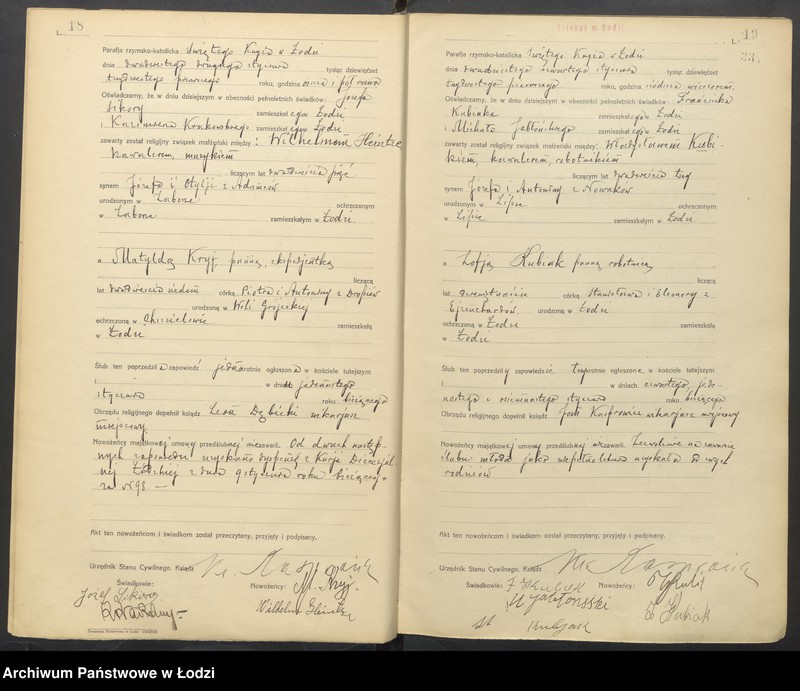 18
Parafja rzymsko-katolicka Świętego Kazia w Łodzi
dnia dwudziestego drugiego stycznia tysiąc dziewięćset
trzydziestego pierwszego roku, godzina ósma i pół rano
Oświadczamy, że w dniu dzisiejszym w obecności pełnoletnich świadków: Józefa
Sikory zamieszkałego w Łodzi
i Kazimierza Krakowskiego zamieszkałego w Łodzi
zawarty został religijny związek małżeński między: Wilhelmem
kawalerem, muzykiem
liczącym lat dwadzieścia pięć
synem Józefa i Otylji z Adamów
urodzonym w Łabone ochrzczonym
w Łabone zamieszkałym w Łodzi
a Matyldą Kryj, panną, ekspedjentką
liczącą
lat dwadzieścia siedem córką Piotra i Antoniny z
urodzoną w Woli Grójeckiej
ochrzczoną w Chmielowie zamieszkałą
w Łodzi
Ślub ten poprzedziła zapowiedź jednokrotnie ogłoszona w kościele tutejszym
i w dniu jedenastego
stycznia roku bieżącego
Obrzędu religijnego dopełnił ksiądz Leon Dębicki wikarjusz
miejscowy.
Nowożeńcy majątkowej umowy przedślubnej nie zawarli. Od dwuch następ-
nych zapowiedzi uzyskano dyspensę z Kurji Diecezjal-
nej Łódzkiej z dnia stycznia roku bieżącego
za № 98. —
Akt ten nowożeńcom i świadkom został przeczytany, przyjęty i podpisany.
Urzędnik Stanu Cywilnego, Ksiądz
Świadkowie: Nowożeńcy: M. Kryj
Józef Sikora
Wilhelm
19
Parafja rzymsko-katolicka Świętego Kazia w Łodzi
dnia dwudziestego czwartego stycznia tysiąc dziewięćset
trzydziestego pierwszego roku, godzina siódma wieczorem
Oświadczamy, że w dniu dzisiejszym w obecności pełnoletnich świadków: Franciszka
Kubiaka zamieszkałego w Łodzi
i Michała Jabłońskiego zamieszkałego w Łodzi
zawarty został religijny związek małżeński między: Władysławem
kiem, kawalerem, robotnikiem
liczącym lat dwadzieścia trzy
synem Józefa i Antoniny z Nowaków
urodzonym w Lipie ochrzczonym
w Lipie zamieszkałym w Łodzi
a Zofją Kubiak panną robotnicą
liczącą
lat córką Stanisława i Eleonory z
urodzoną w Łodzi
ochrzczoną w Łodzi zamieszkałą
w Łodzi
Ślub ten poprzedziły zapowiedzie trzykrotnie ogłoszone w kościele tutejszym
i w dniach czwartego, jede-
nastego i osiemnastego stycznia roku bieżącego
Obrzędu religijnego dopełnił ksiądz wikarjusz miejscowy
Nowożeńcy majątkowej umowy przedślubnej nie zawarli. Zezwolenie na zawarcie
ślubu młoda jako niepełnoletnia uzyskała od swych
rodziców
Akt ten nowożeńcom i świadkom został przeczytany, przyjęty i podpisany.
Urzędnik Stanu Cywilnego, Ksiądz
Świadkowie: F Kubiak Nowożeńcy:
M Jabłonsski
Kubiak
Archiwum Państwowe w Łodzi